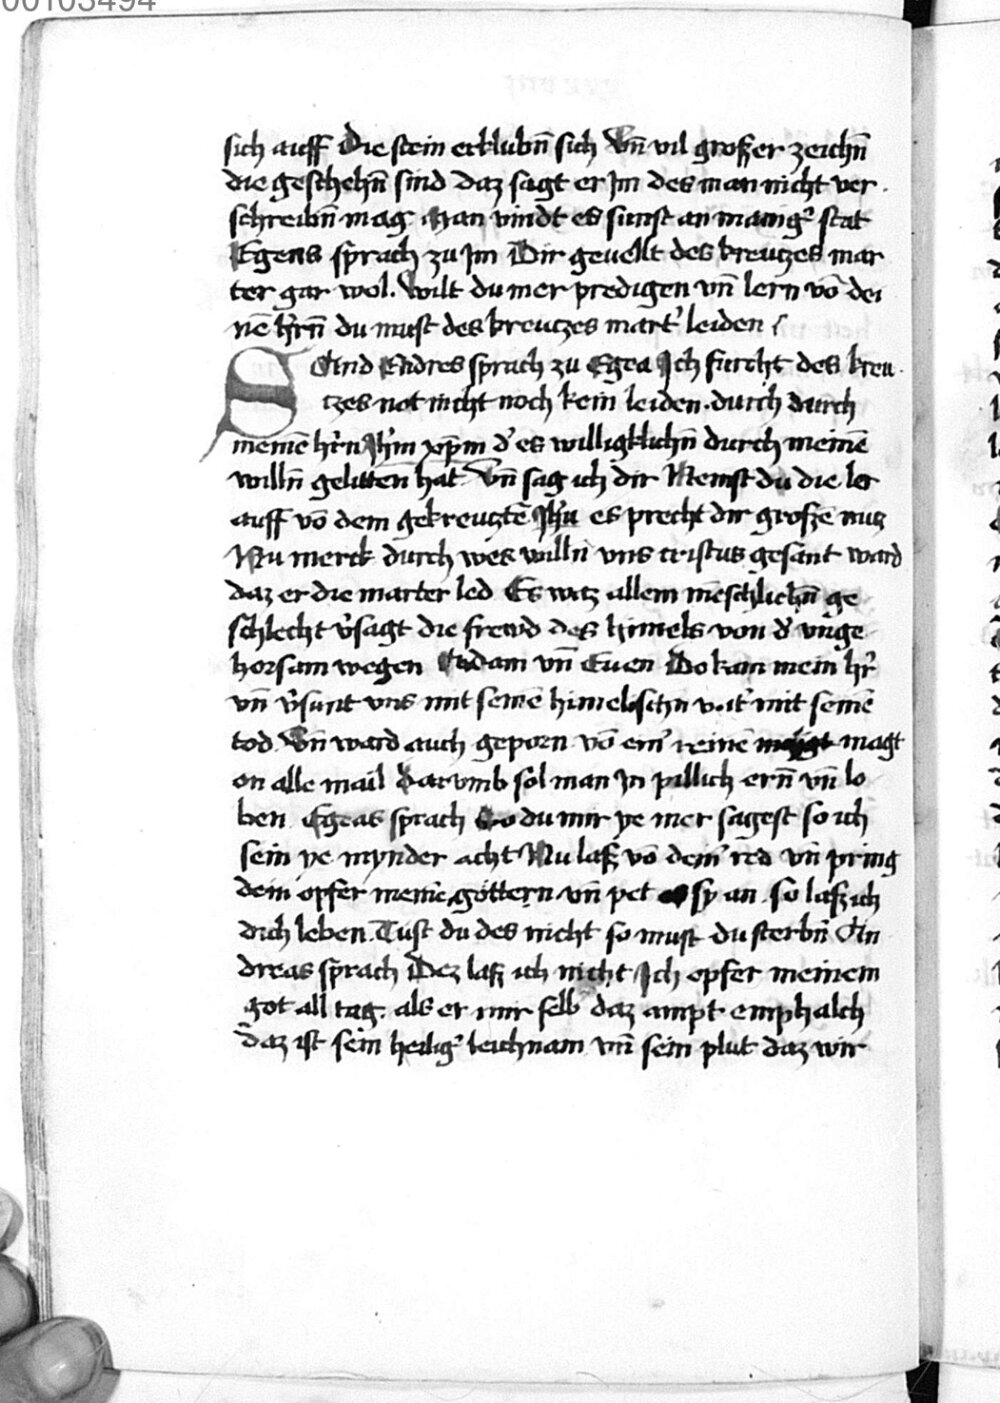 00103494
sich auff Die stein erklubn̄ sich Vn̄ vil grosser zeichn̄
die geschehn̄ sind daz sagt er Im des man nicht ver
schreibn̄ mag Man vindt es sunst an manig᾽ stat
Egeas sprach zu Im Dir geuellt des kreutzes mar
ter gar wol. Wilt du mer predigen vn̄ lern vō dei
nē h᾽rn̄ du must des kreutzes mart᾽ leiden
SAnd Endres sprach zu Egea Ich furcht des kreu
tzes not nicht noch kein leiden. durch durch
meinē h᾽rn Ih᾽m xp̄m d᾽ es williglichn̄ durch meinē
willn̄ gelitten hat Vn̄ sag ich dir Nemst du die ler
auff vō dem gekreutztē Ihū es precht dir groszē nucz
Nu merck durch wes willn̄ vns cristus gesant ward
daz er die marter led Es waz allem mēschlichn̄ ge
schlecht v᾽sagt die frewd des himels von d᾽ vnge
horsam wegen Adam vn̄ Euen Do kam mein h᾽r
vn̄ v᾽sunt vns mit seinē himelischn vat᾽ mit seinē
tod Vn̄ ward auch geporn vō ein᾽ reinē magt
on alle mail Darvmb sol man In pillich ern̄ vn̄ lo
ben Egeas sprach So du mir ye mer sagest so ich
sein ye mynder acht Nu lasz vō dein᾽ red vn̄ pring
dein opfer meinē göttern vn̄ pet sy an so lasz ich
dich leben. Tust du des nicht so must du sterbn̄ An
dreas sprach Dez lasz ich nicht Ich opfer meinem
got all tag als er mir selb daz ampt emphalch
daz ist sein heilig᾽ leichnam vn̄ sein plut daz wir